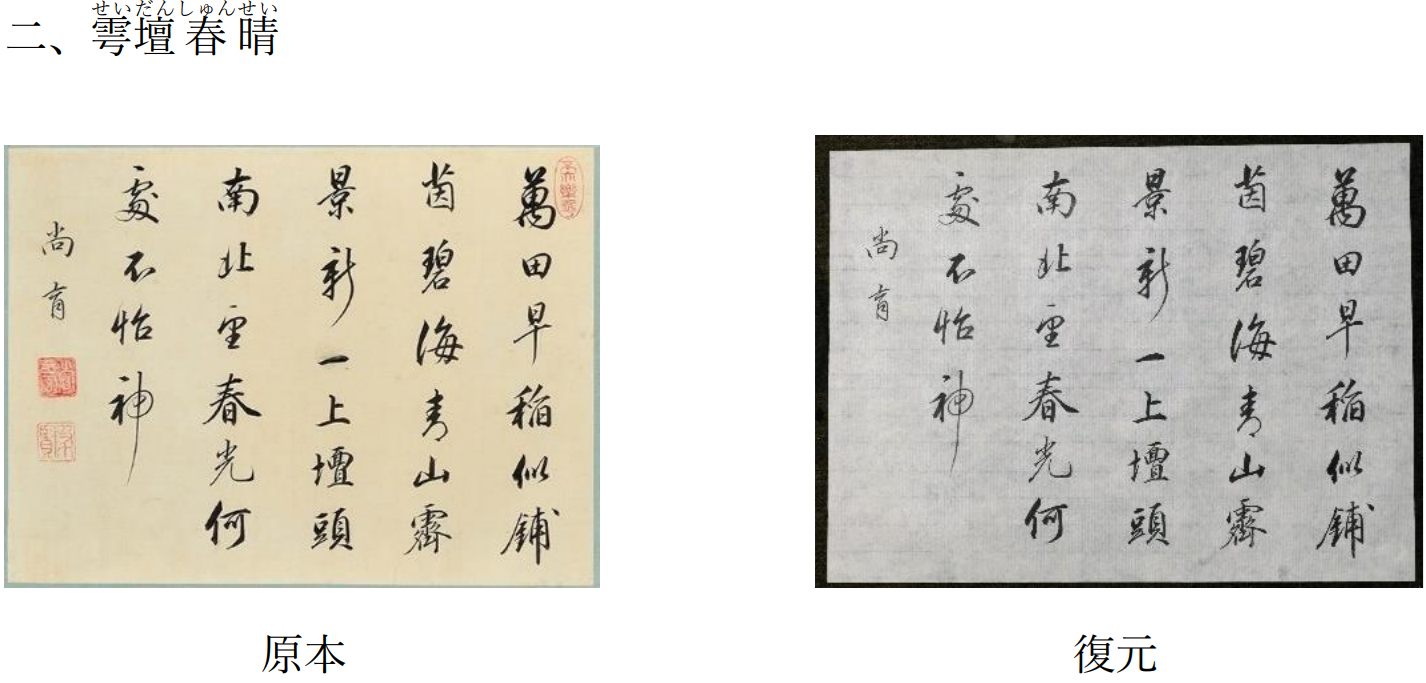 せいだんしゅんせい
二、雩壇春晴
萬田早稲似鋪
茵碧海青山霽
景新一上壇頭
南北望春光何
處不怡神
尚育
原本
萬田早稲似鋪
茵碧海青山霽
景新一上壇頭
南北望春光何
處不怡神
尚育
復元